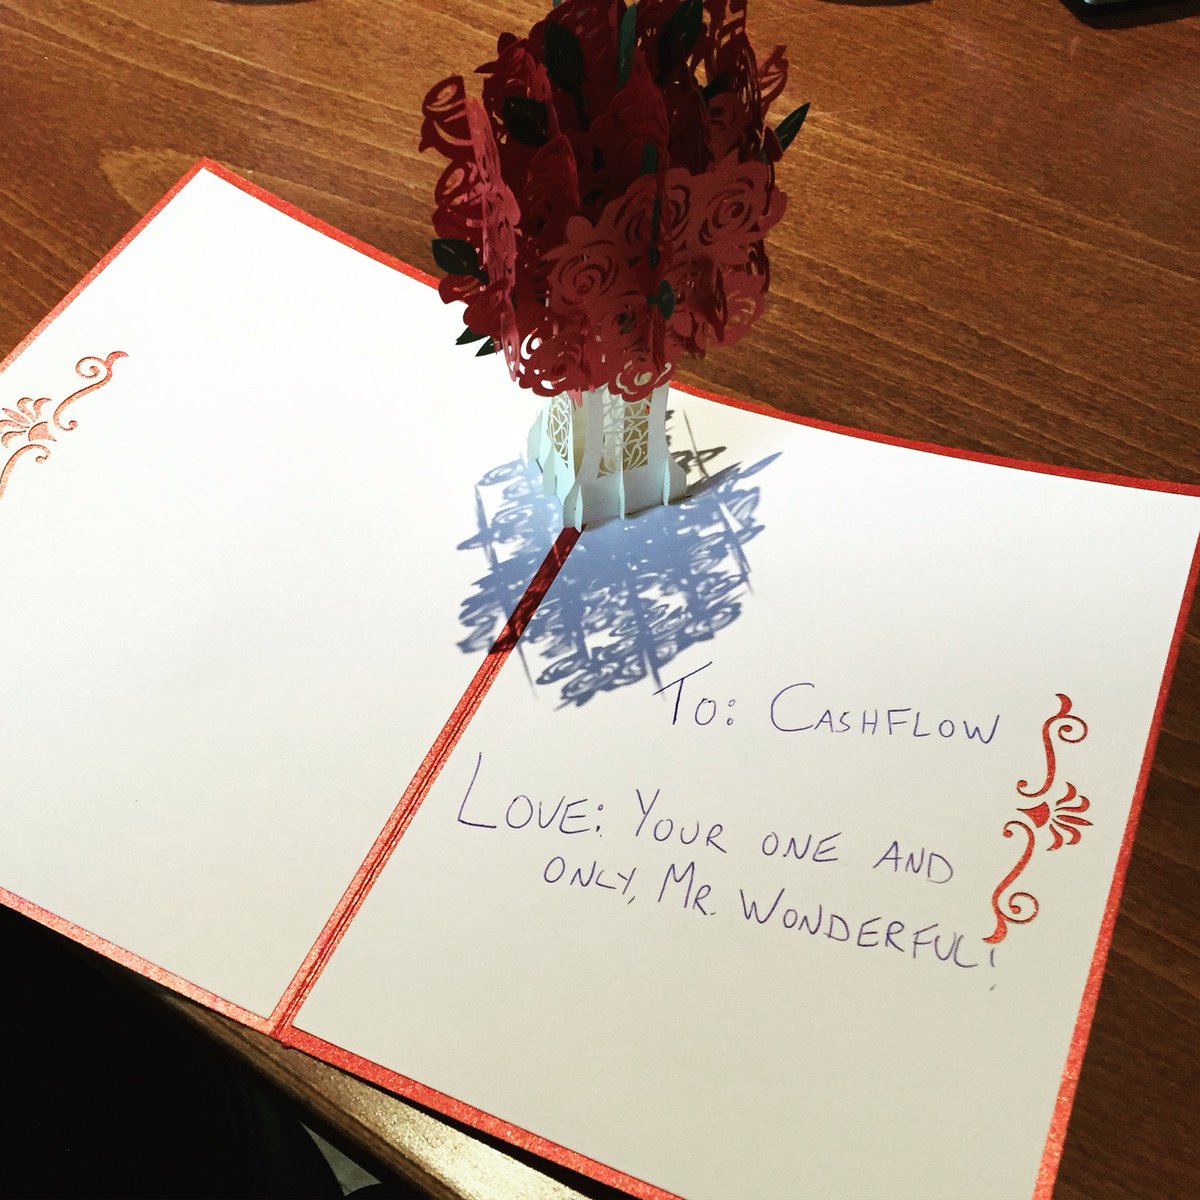 To: CASHFLOW
LOVE: YOUR ONE AND
ONLY, MR. WONDERFUL!